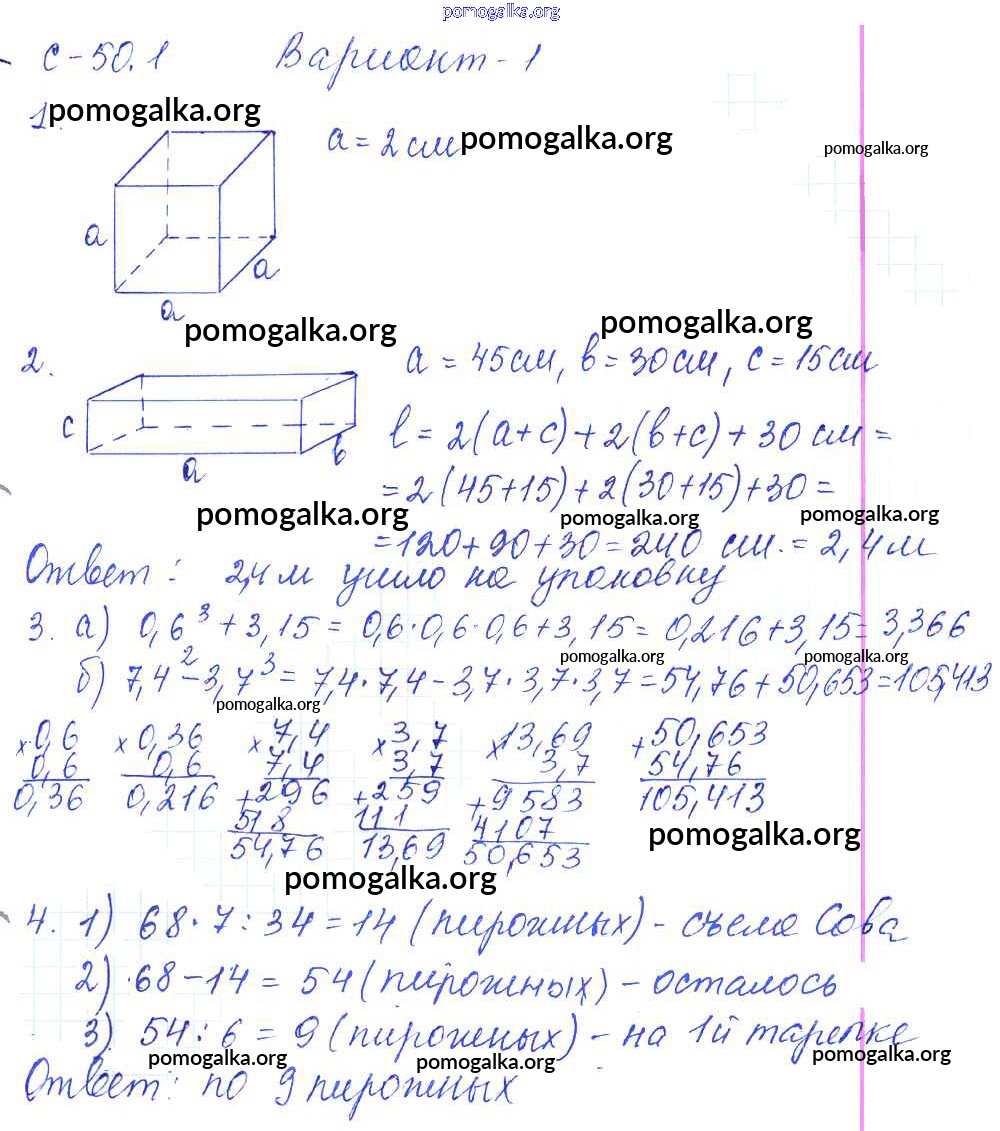 pomogalka.org
С-50.1 Вариант-1
1. pomogalka.org
a = 2 см pomogalka.org
pomogalka.org
a
a
a
pomogalka.org pomogalka.org
2. a = 45 см, b = 30 см, c = 15 см
c
a
b
l = 2(a+c) + 2(b+c) + 30 см =
= 2(45+15) + 2(30+15) + 30 =
pomogalka.org pomogalka.org pomogalka.org
= 120 + 90 + 30 = 240 см. = 2,4 м
Ответ: 2,4 м ушло на упаковку
3. а) 0,6³ + 3,15 = 0,6·0,6·0,6 + 3,15 = 0,216 + 3,15 = 3,366
pomogalka.org pomogalka.org
б) 7,4² - 3,7³ = 7,4·7,4 - 3,7·3,7·3,7 = 54,76 + 50,653 = 105,413
pomogalka.org
×0,6 ×0,36 ×7,4 ×3,7 ×13,69 +50,653
0,6 0,6 7,4 3,7 3,7 54,76
0,36 0,216 +296 +259 +9583 105,413
518 111 4107
54,76 13,69 50,653
pomogalka.org
pomogalka.org
4. 1) 68·7:34 = 14 (пирожных) - съела Сова
2) 68 - 14 = 54 (пирожных) - осталось
3) 54 : 6 = 9 (пирожных) - на 1й тарелке
pomogalka.org pomogalka.org pomogalka.org
Ответ: по 9 пирожных